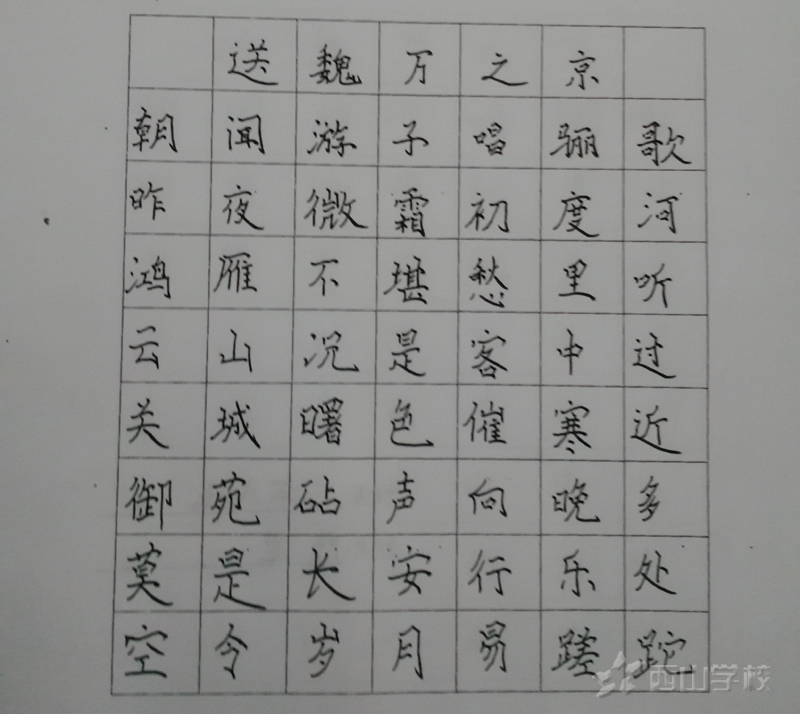 送魏万之京
朝闻游子唱骊歌
昨夜微霜初度河
鸿雁不堪愁里听
云山况是客中过
关城曙色催寒近
御苑砧声向晚多
莫是长安行乐处
空令岁月易蹉跎
西山学校